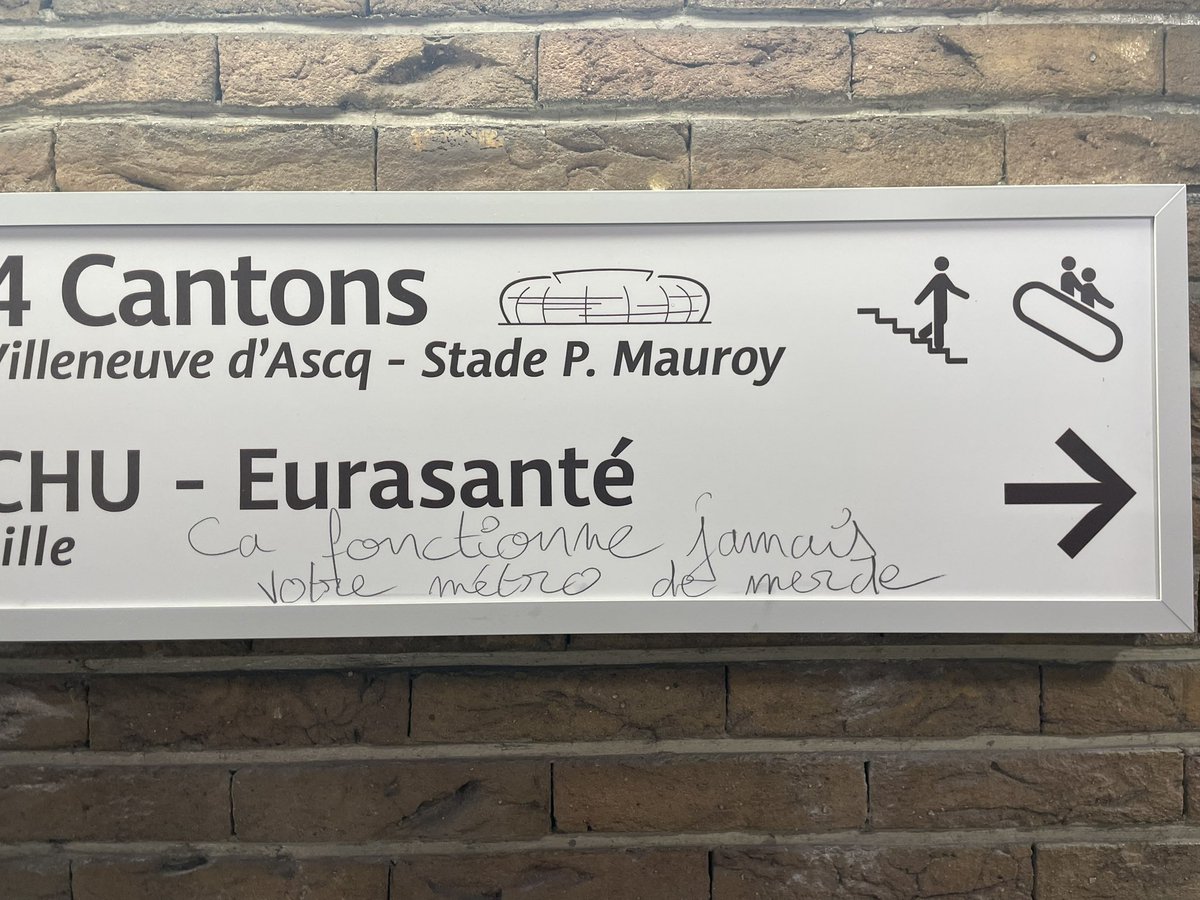 4 Cantons
Villeneuve d'Ascq - Stade P. Mauroy
CHU - Eurasanté
ille
Ca fonctionne jamais
votre métro de merde